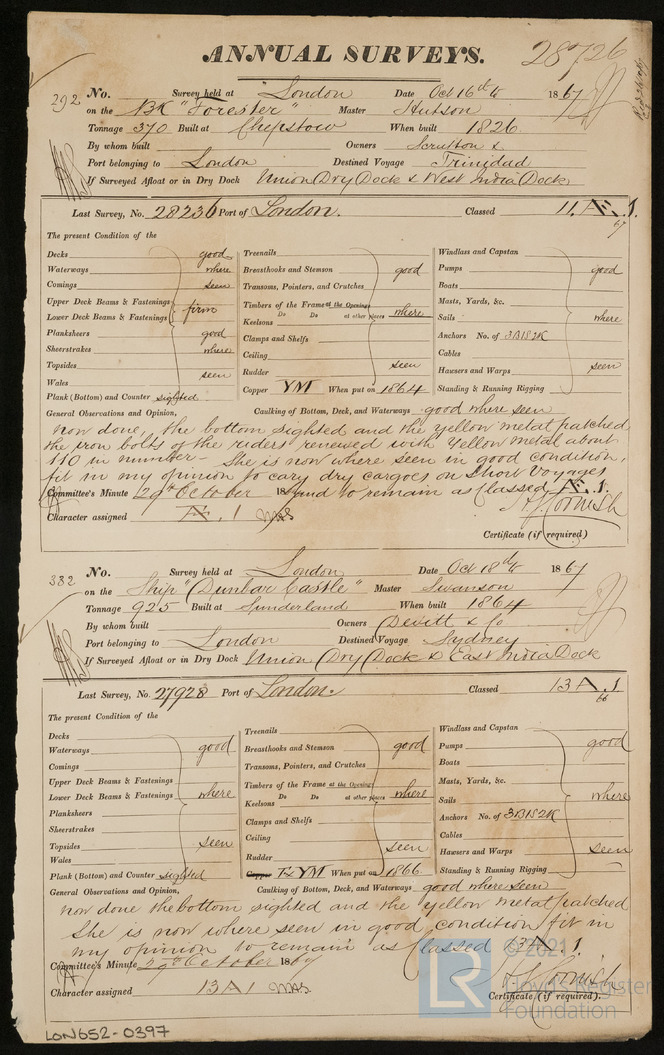 ANNUAL SURVEYS. 28726
292 No. Survey held at London Date Oct 16th 1867
on the Bk "Forester" Master Hutson
Tonnage 370 Built at Chepstow When built 1826
By whom built Owners Scrutton &
Port belonging to London Destined Voyage Trinidad
If Surveyed Afloat or in Dry Dock Union Dry Dock & West India Dock
Last Survey, No. 28236 Port of London. Classed 11. Æ. 1.
67
The present Condition of the
Decks good
Waterways where
Comings seen
Upper Deck Beams & Fastenings
Lower Deck Beams & Fastenings firm
Planksheers good
Sheerstrakes where
Topsides
Wales seen
Plank (Bottom) and Counter sighted
Treenails
Breasthooks and Stemson good
Transoms, Pointers, and Crutches
Timbers of the Frame at the Openings
Do Do at other places where
Keelsons
Clamps and Shelfs
Ceiling
Rudder seen
Copper YM When put on 1864
Windlass and Capstan
Pumps good
Boats
Masts, Yards, &c.
Sails where
Anchors No. of 3B1S2K
Cables
Hawsers and Warps seen
Standing & Running Rigging
General Observations and Opinion, Caulking of Bottom, Deck, and Waterways good where seen
now done, the bottom sighted and the yellow metal patched
the iron bolts of the riders renewed with yellow metal about
110 in number - She is now where seen in good condition,
fit in my opinion to cary dry cargoes on Short Voyages
and to remain as Classed Æ. 1.
Committee's Minute 29th October 18
Character assigned Æ. 1
Certificate (if required)
382 No. Survey held at London Date Oct 18th 1867
on the Ship "Dunbar Castle" Master Swanson
Tonnage 925 Built at Sunderland When built 1864
By whom built Owners Devitt & Co
Port belonging to London Destined Voyage Sydney
If Surveyed Afloat or in Dry Dock Union Dry Dock & East India Dock
Last Survey, No. 27928 Port of London. Classed 13 A. 1
66
The present Condition of the
Decks
Waterways good
Comings
Upper Deck Beams & Fastenings
Lower Deck Beams & Fastenings where
Planksheers
Sheerstrakes
Topsides seen
Wales
Plank (Bottom) and Counter sighted
Treenails
Breasthooks and Stemson good
Transoms, Pointers, and Crutches
Timbers of the Frame at the Openings
Do Do at other places where
Keelsons
Clamps and Shelfs
Ceiling
Rudder seen
Copper YM When put on 1866
Windlass and Capstan
Pumps good
Boats
Masts, Yards, &c.
Sails where
Anchors No. of 3B1S2K
Cables
Hawsers and Warps seen
Standing & Running Rigging
General Observations and Opinion, Caulking of Bottom, Deck, and Waterways good where seen
now done the bottom sighted and the yellow metal patched
She is now where seen in good condition fit in
my opinion to remain as Classed 13A. 1.
Committee's Minute 29th October 1867
Character assigned 13A1
Certificate (if required).
LON652-0397
© 2021
LR Lloyd's Register
Foundation